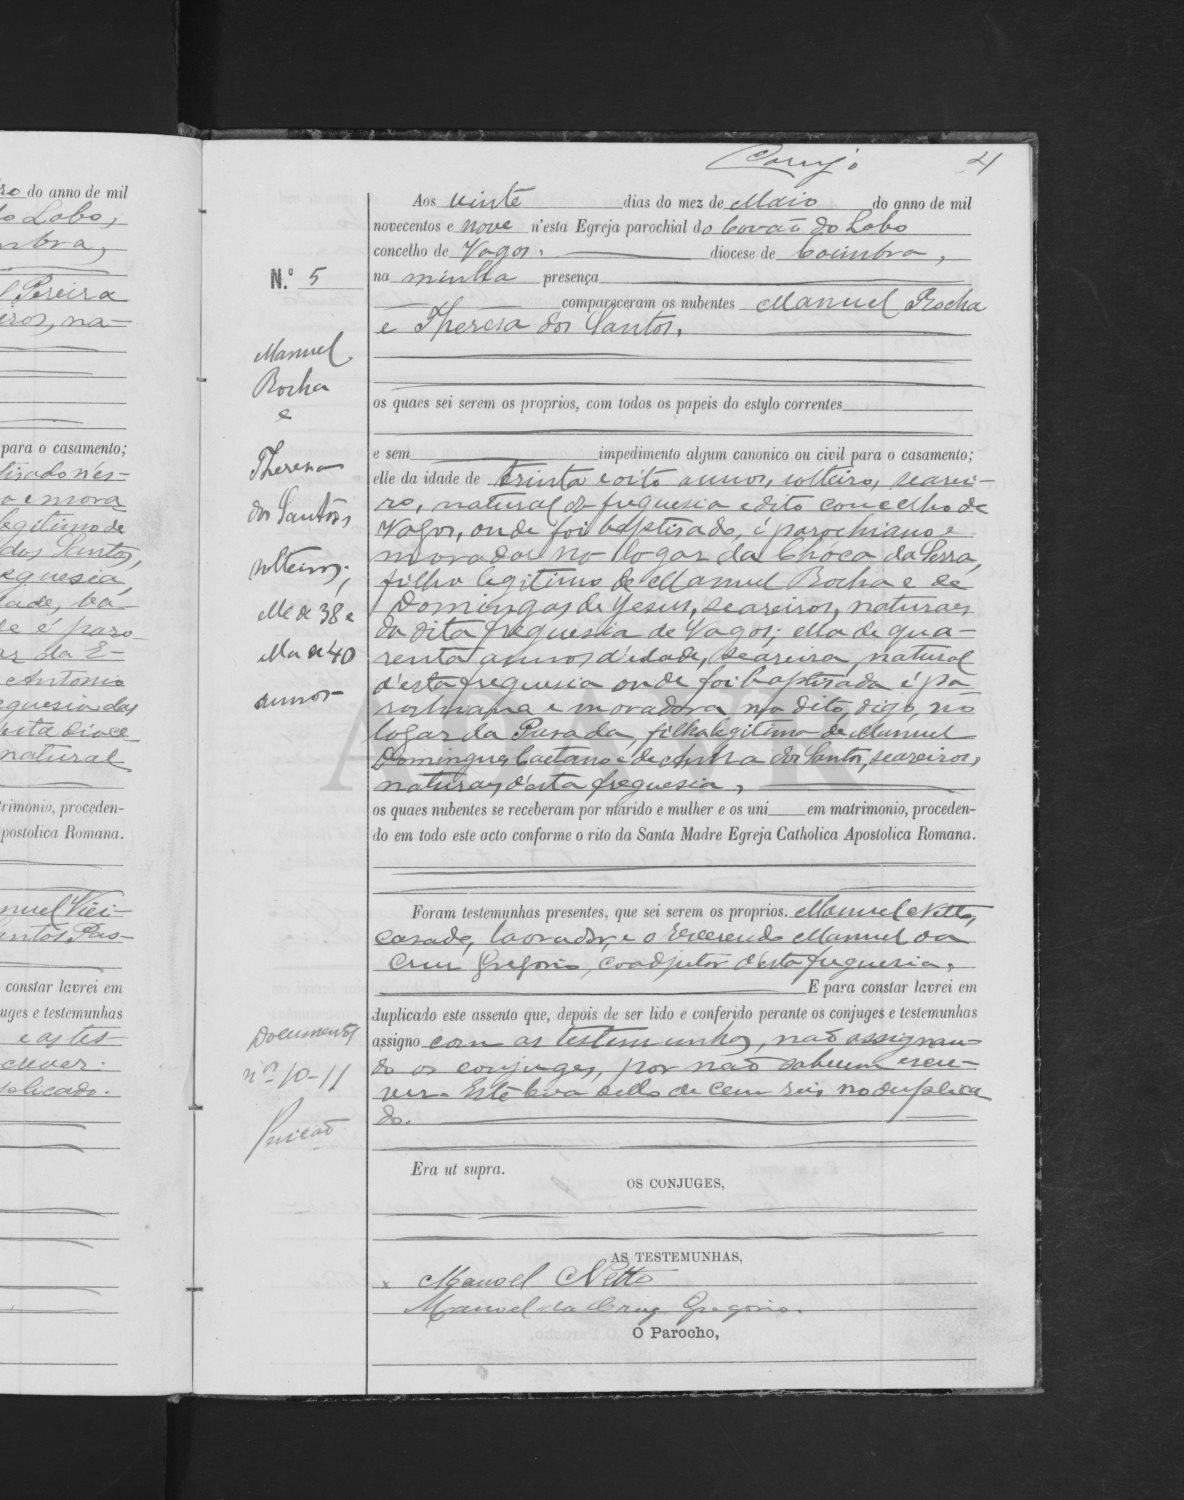 ro do anno de mil
do Lobo,
mbra,
Pereira
iros, na-
para o casamento;
tisado n'es-
e mora
legitimo de
dos Santos,
eguesia,
dade, ba-
e é paro-
ar da E-
Antonio
eguesia das
dita dioce
natural
trimonio, proceden-
postolica Romana.
nuel Viei-
antos Pas-
constar lavrei em
uges e testemunhas
e as tes-
crever.
plicado.
4
Aos vinte dias do mez de Maio do anno de mil
novecentos e nove n'esta Egreja parochial do Covão do Lobo
concelho de Vagos, diocese de Coimbra,
na minha presença
compareceram os nubentes Manuel Rocha
e Theresa dos Santos,
os quaes sei serem os proprios, com todos os papeis do estylo correntes
e sem impedimento algum canonico ou civil para o casamento;
elle da idade de trinta e oito annos, solteiro, searei-
ro, natural da freguesia e dito concelho de
Vagos, onde foi baptisado, é parochiano e
morador no logar da Choca da Serra,
filho legitimo de Manuel Rocha e de
Domingas de Jesus, seareiros, naturaes
da dita freguesia de Vagos; ella de qua-
renta annos d'edade, seareira, natural
d'esta freguesia onde foi baptisada é pa-
rochiana e moradora no dito, digo, no
logar da Parada, filha legitima de Manuel
Domingues Caetano e de Anna dos Santos, seareiros,
naturaes d'esta freguesia,
os quaes nubentes se receberam por marido e mulher e os uni em matrimonio, proceden-
do em todo este acto conforme o rito da Santa Madre Egreja Catholica Apostolica Romana.
Foram testemunhas presentes, que sei serem os proprios, Manuel Netto,
casado, lavrador, e o Reverendo Manuel da
Cruz Gregorio, coadjutor d'esta freguesia,
E para constar lavrei em
duplicado este assento que, depois de ser lido e conferido perante os conjuges e testemunhas
assigno com as testemunhas, não assignan-
do os conjuges, por não saberem escre-
ver. Este leva sello de cem reis no duplica-
do.
Era ut supra.
OS CONJUGES,
AS TESTEMUNHAS,
x Manoel Netto
Manoel da Cruz Gregorio.
O Parocho,
N.º 5
Manuel
Rocha
e
Theresa
dos Santos
solteiros;
elle de 38 e
ella de 40
annos
Documentos
nos 10-11
ADAVR